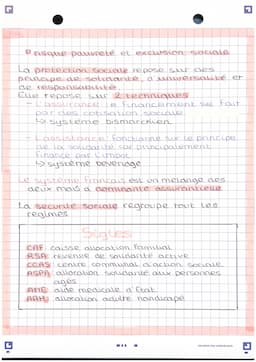 risque pauvreté et exclusion sociale
La protection sociale repose sur des
principe de solidarité, d'universalité et
de responsabilité.
Elle repose sur 2 techniques
- L'assurance: le financement se fait
par des cotisation sociale
↳ système bismarckien
- L'assistance: fonctionne sur le principe
de la solidarité principalement
financé par l'impot
↳ système beveridge
Le système français est un mélange des
deux mais a dominante assurantielle
La sécurité sociale regroupe tout les
régimes
Sigles
CAF: caisse allocation familial
RSA: revenue de solidarité active
CCAS: centre communal d'action sociale
ASPA: allocation solidarité aux personnes
agés
AME: aide medicale d'Etat
AAH: allocation adulte handicapé